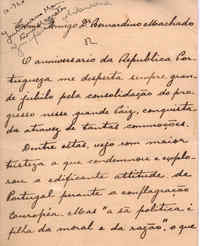 Exmo. Amigo Dr. Bernardino Machado
O anniversario da Republica Por-
tugueza me desperta sempre gran-
de jubilo pela consolidação do pro-
gresso nesse grande Paiz, conquista-
da atravez de tantas commoções.
Dentre ellas, vejo com maior
tristeza a que condemnou e explo-
rou a edificante attitude de
Portugal perante a conflagração
Européa. Mas "a sã politica é
filha da moral e da razão", o que